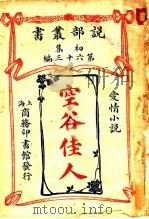 說部叢書
初集
第六十三編
愛情小說
空谷佳人
上海商務印書館發行